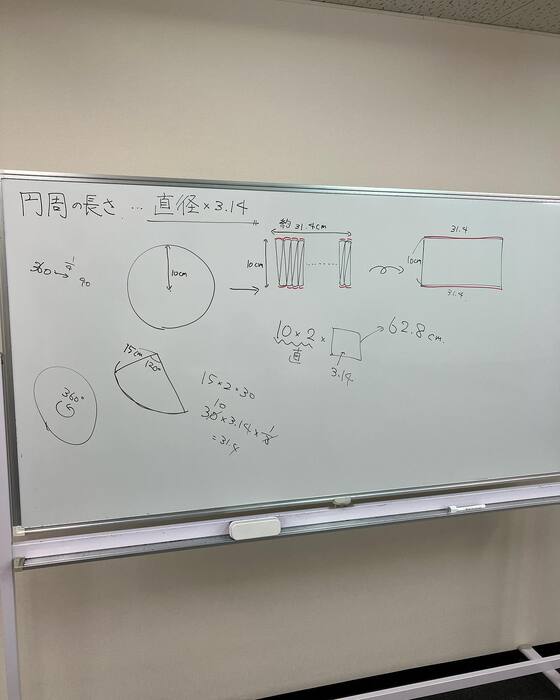 円周の長さ … 直径×3.14
約31.4cm
10cm
10cm
31.4
10cm
31.4
360→ 1/4
90
10×2×
直
3.14
62.8cm.
15cm
120°
360°
15×2=30
10
30×3.14×1/3
=31.4